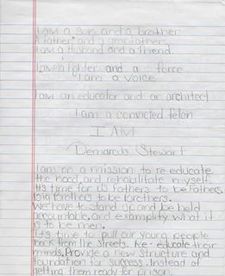 I am a son and a brother
a father and a grandfather
I am a husband and a friend.
I am a fighter and a force
I am a voice
I am an educator and an architect
I am a convicted felon
I AM
Demarcus Stewart
I am on a mission to re educate
the hood and rehabilitate myself.
It's time for us fathers to be fathers
big brothers to be brothers.
We have to stand up and be held
accountable, and examplify what it
is to be men.
It's time to pull our young people
back from the streets. Re-educate their
minds. Provide a new structure and
foundation for success. Instead of
getting them ready for prison